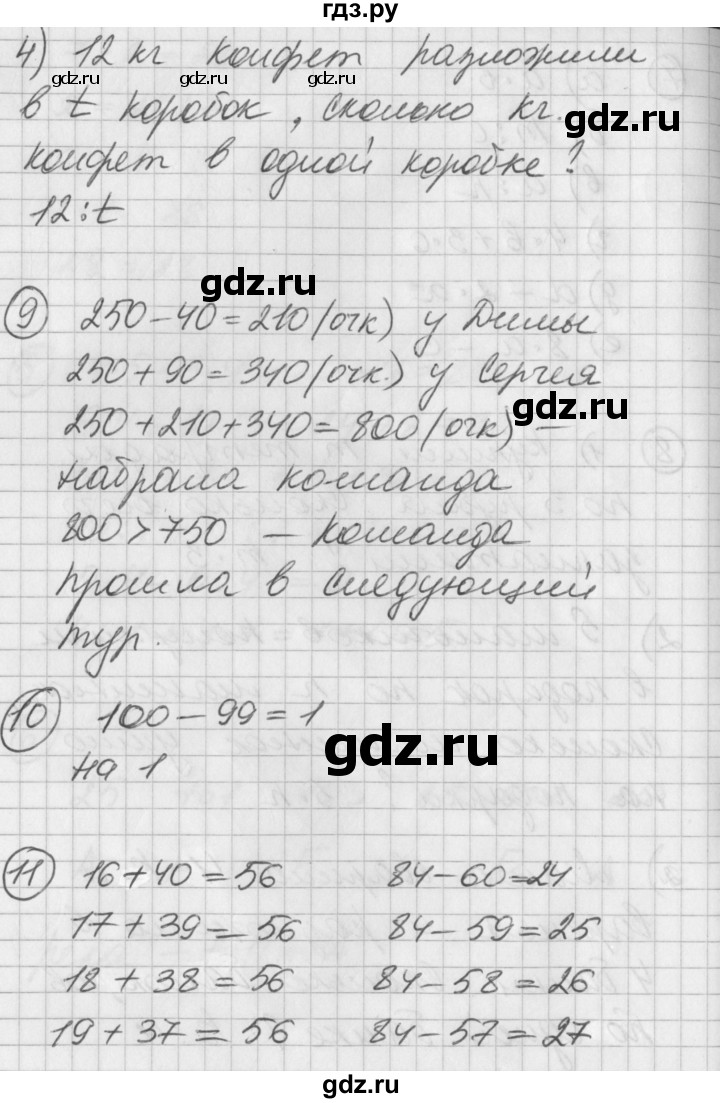 гдз.ру
4) 12 кг конфет разложили
gdz.ru gdz.ru gdz.ru
в t коробок, сколько кг.
gdz.ru
конфет в одной коробке?
12:t
gdz.ru
9 250-40=210 (очк) у Димы
250+90=340 (очк.) у Сергея
gdz.ru
250+210+340=800 (очк) –
набрала команда
800>750 – команда
gdz.ru
прошла в следующий
тур.
10 100-99=1
gdz.ru
на 1
11 16+40=56 84-60=24
17+39=56 84-59=25
18+38=56 84-58=26
19+37=56 84-57=27
gdz.ru